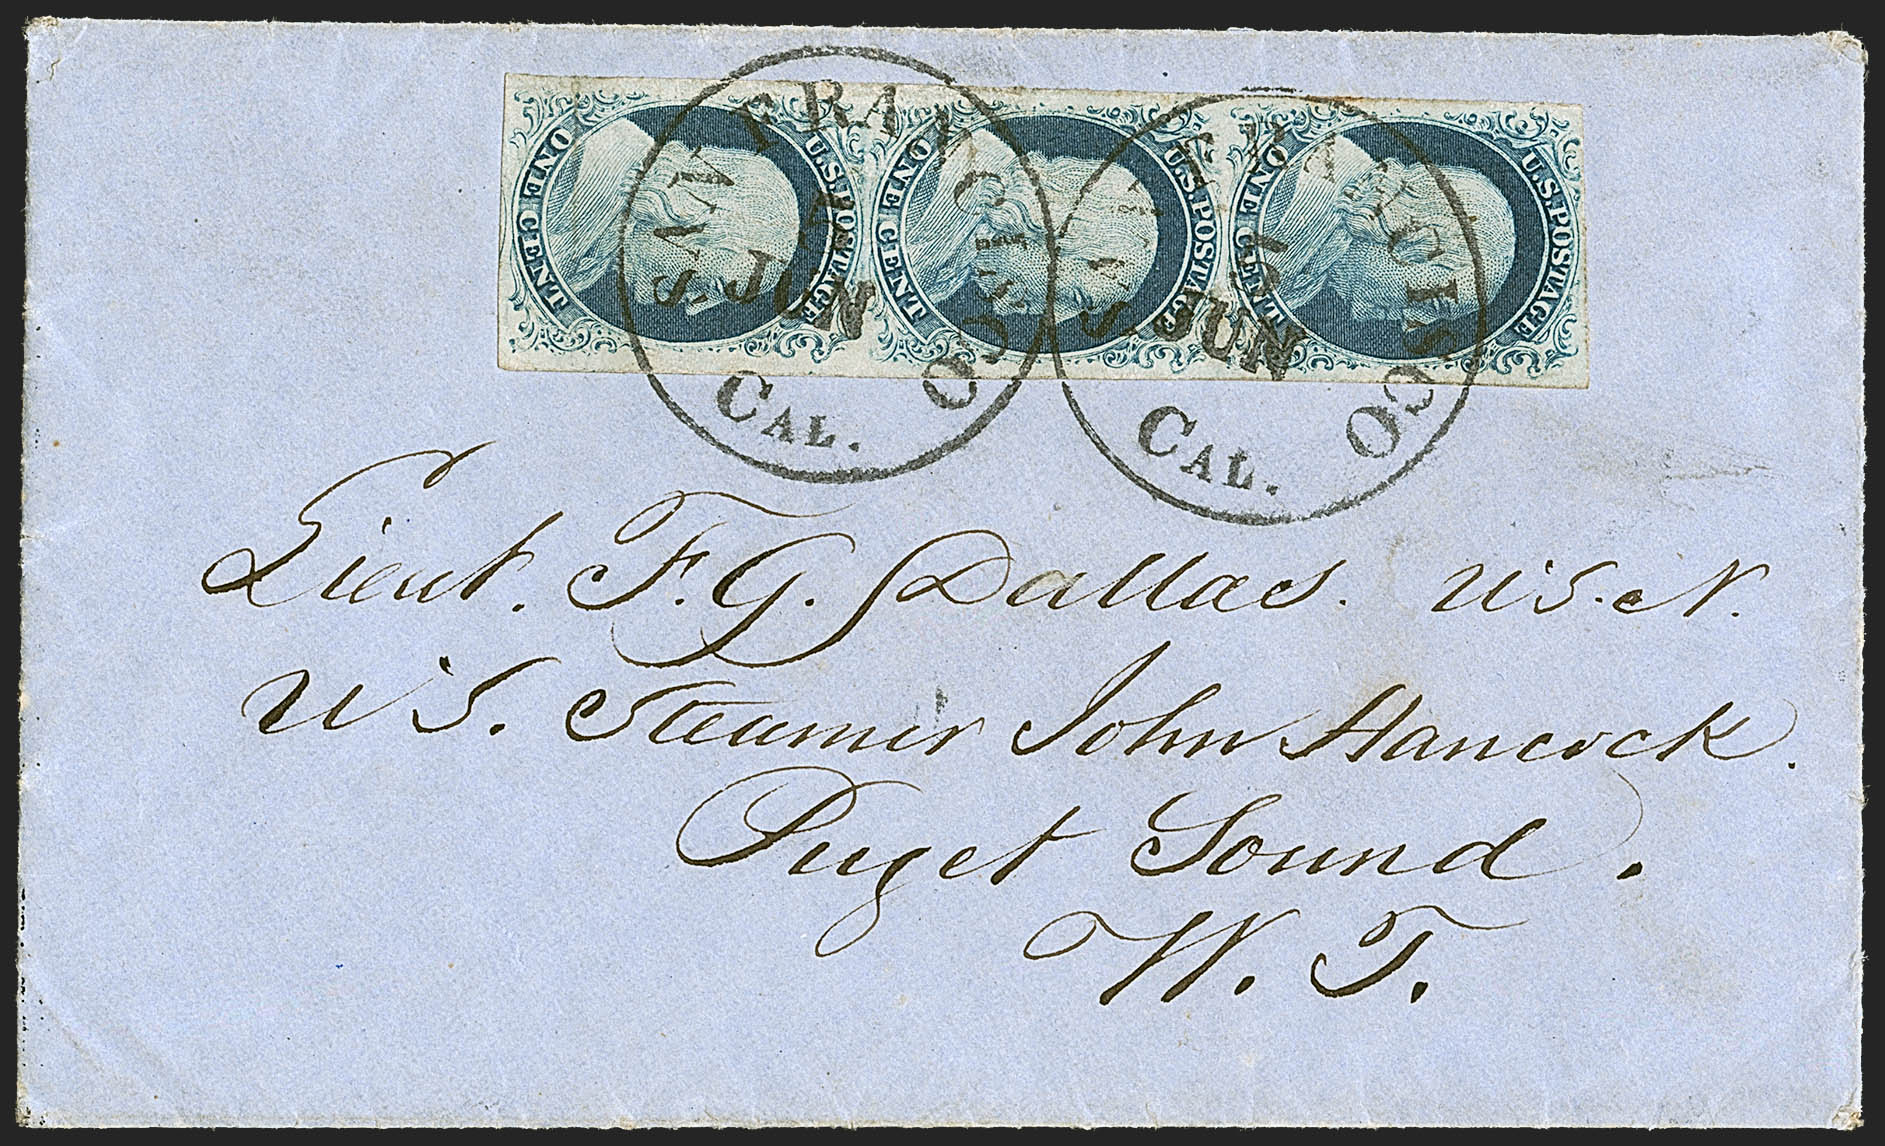 ONE CENT U.S. POSTAGE
ONE CENT U.S. POSTAGE
ONE CENT U.S. POSTAGE
SAN FRANCISCO
JUN
CAL.
SAN FRANCISCO
JUN
CAL.
Lieut. F. G. Dallas. U.S.N.
U S. Steamer John Hancock.
Puget Sound.
W. T.